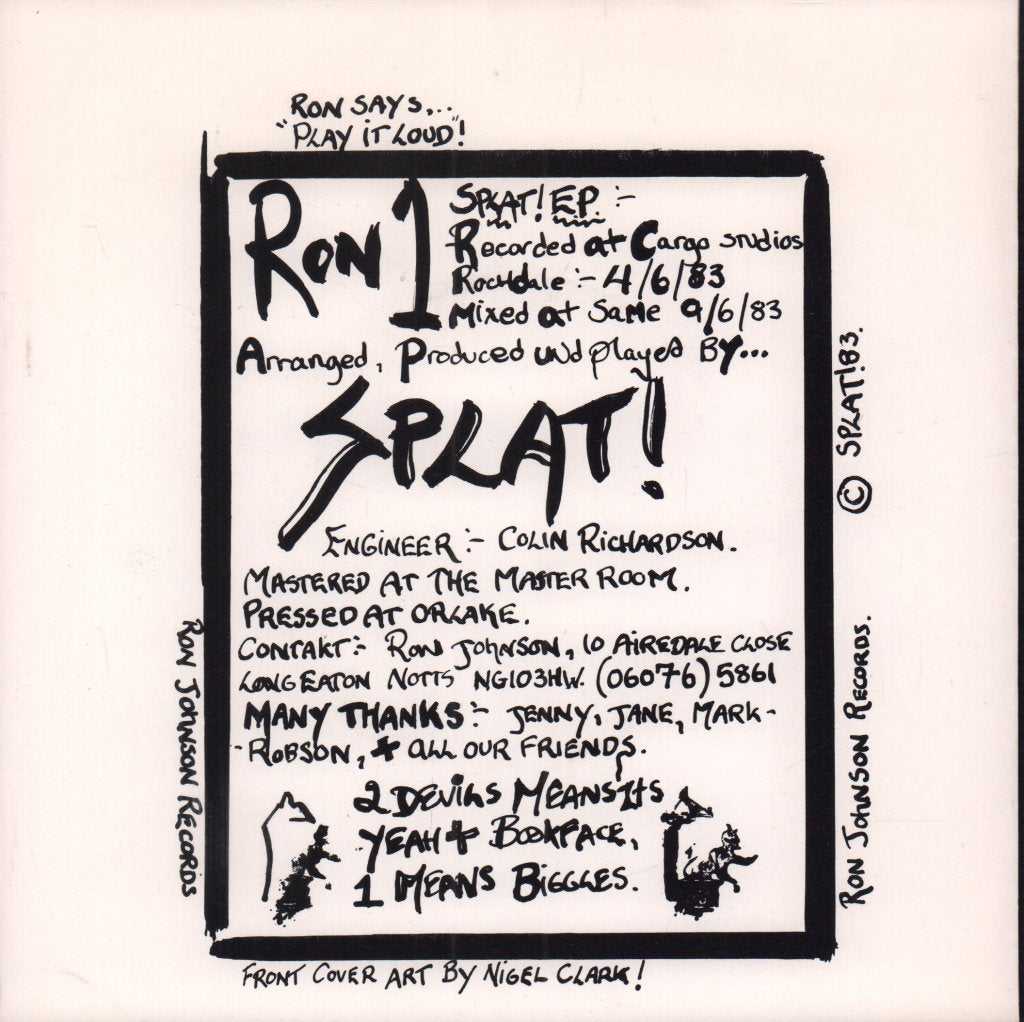 RON SAYS,...
"PLAY IT LOUD!
RON 1
SPLAT! EP :-
Recorded at Cargo Studios
Rochdale :- 4/6/83
Mixed at Same 9/6/83
Arranged, Produced und played By...
SPLAT!
ENGINEER :- COLIN RICHARDSON.
MASTERED AT THE MASTER ROOM.
PRESSED AT ORLAKE.
CONTAKT :- RON JOHNSON, 10 AIREDALE CLOSE
LONG EATON NOTTS NG103HW. (06076) 5861
MANY THANKS :- JENNY, JANE, MARK-
-ROBSON, + ALL OUR FRIENDS.
2 DEVILS MEANS ITS
YEAH + BOOKFACE,
1 MEANS BIGGLES.
RON JOHNSON RECORDS
RON JOHNSON RECORDS. © SPLAT! 83.
FRONT COVER ART BY NIGEL CLARK!